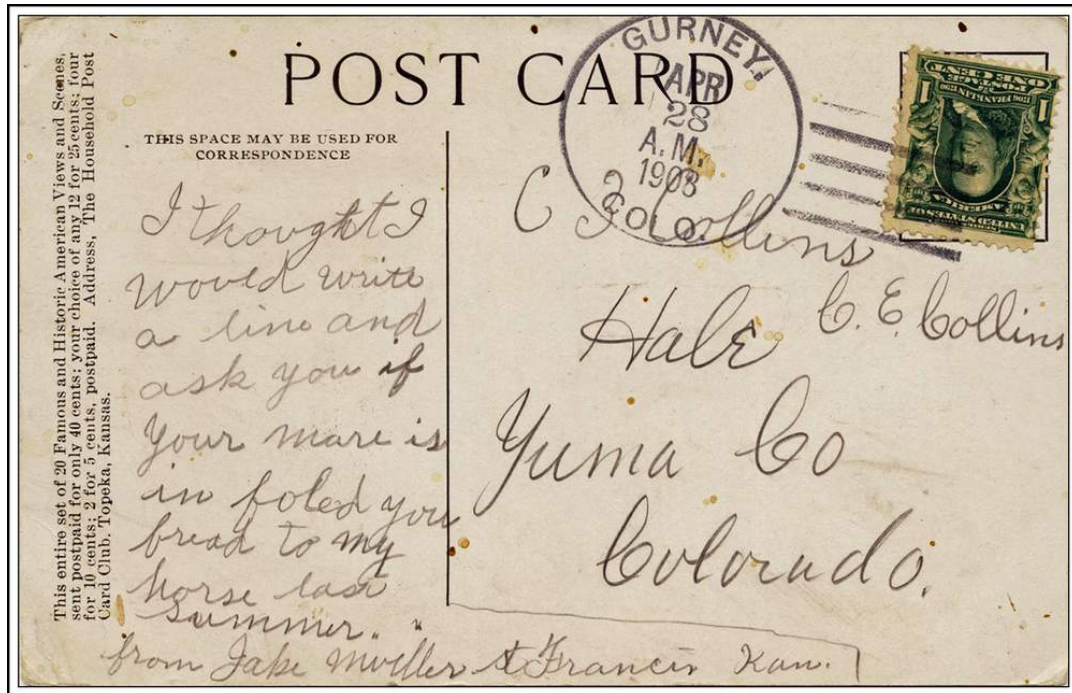 This entire set of 20 Famous and Historic American Views and Scenes,
sent postpaid for only 40 cents; your choice of any 12 for 25 cents; four
for 10 cents; 2 for 5 cents, postpaid. Address, The Household Post
Card Club. Topeka, Kansas.
POST CARD
THIS SPACE MAY BE USED FOR
CORRESPONDENCE
GURNEY
APR
28
A.M.
1908
COLO.
1 POSTAGE 1
ONE CENT
UNITED STATES OF
AMERICA
I thought I
would write
a line and
ask you if
your mare is
in foled you
bread to my
horse last
summer.
from Jake Mueller St Francis Kan.
C Collins
Hale
C. E. Collins
Yuma Co
Colorado.